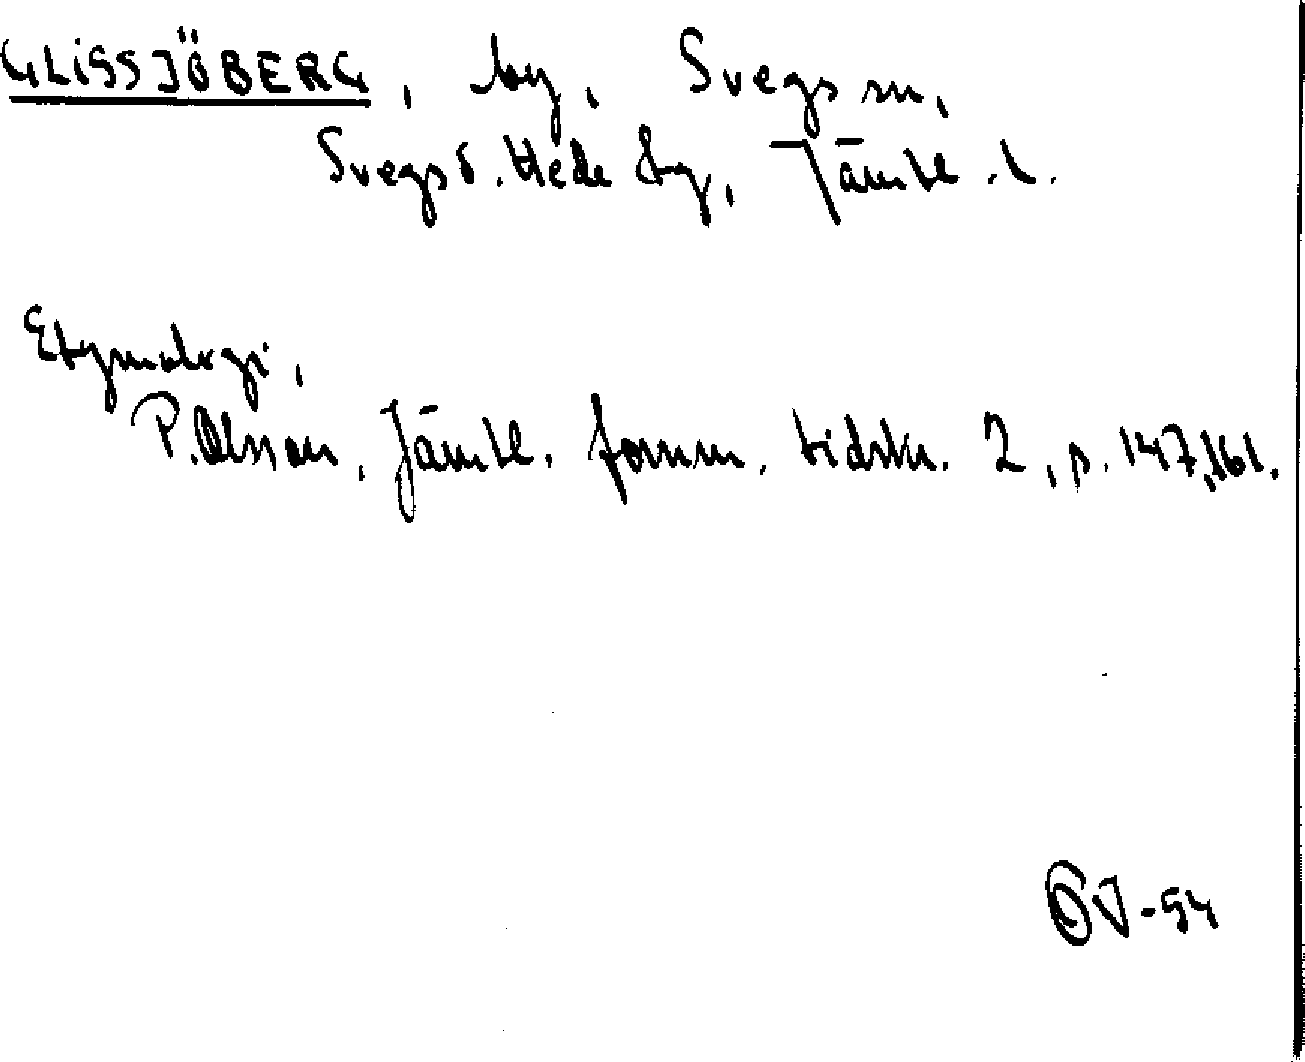 GLISSJÖBERG, by, Svegs sn,
Svegs o. Hede tg, Jämtl. l.
Etymologi,
P. Olsson, Jämtl. fornm. tidskr. 2, p. 147, 161.
-54